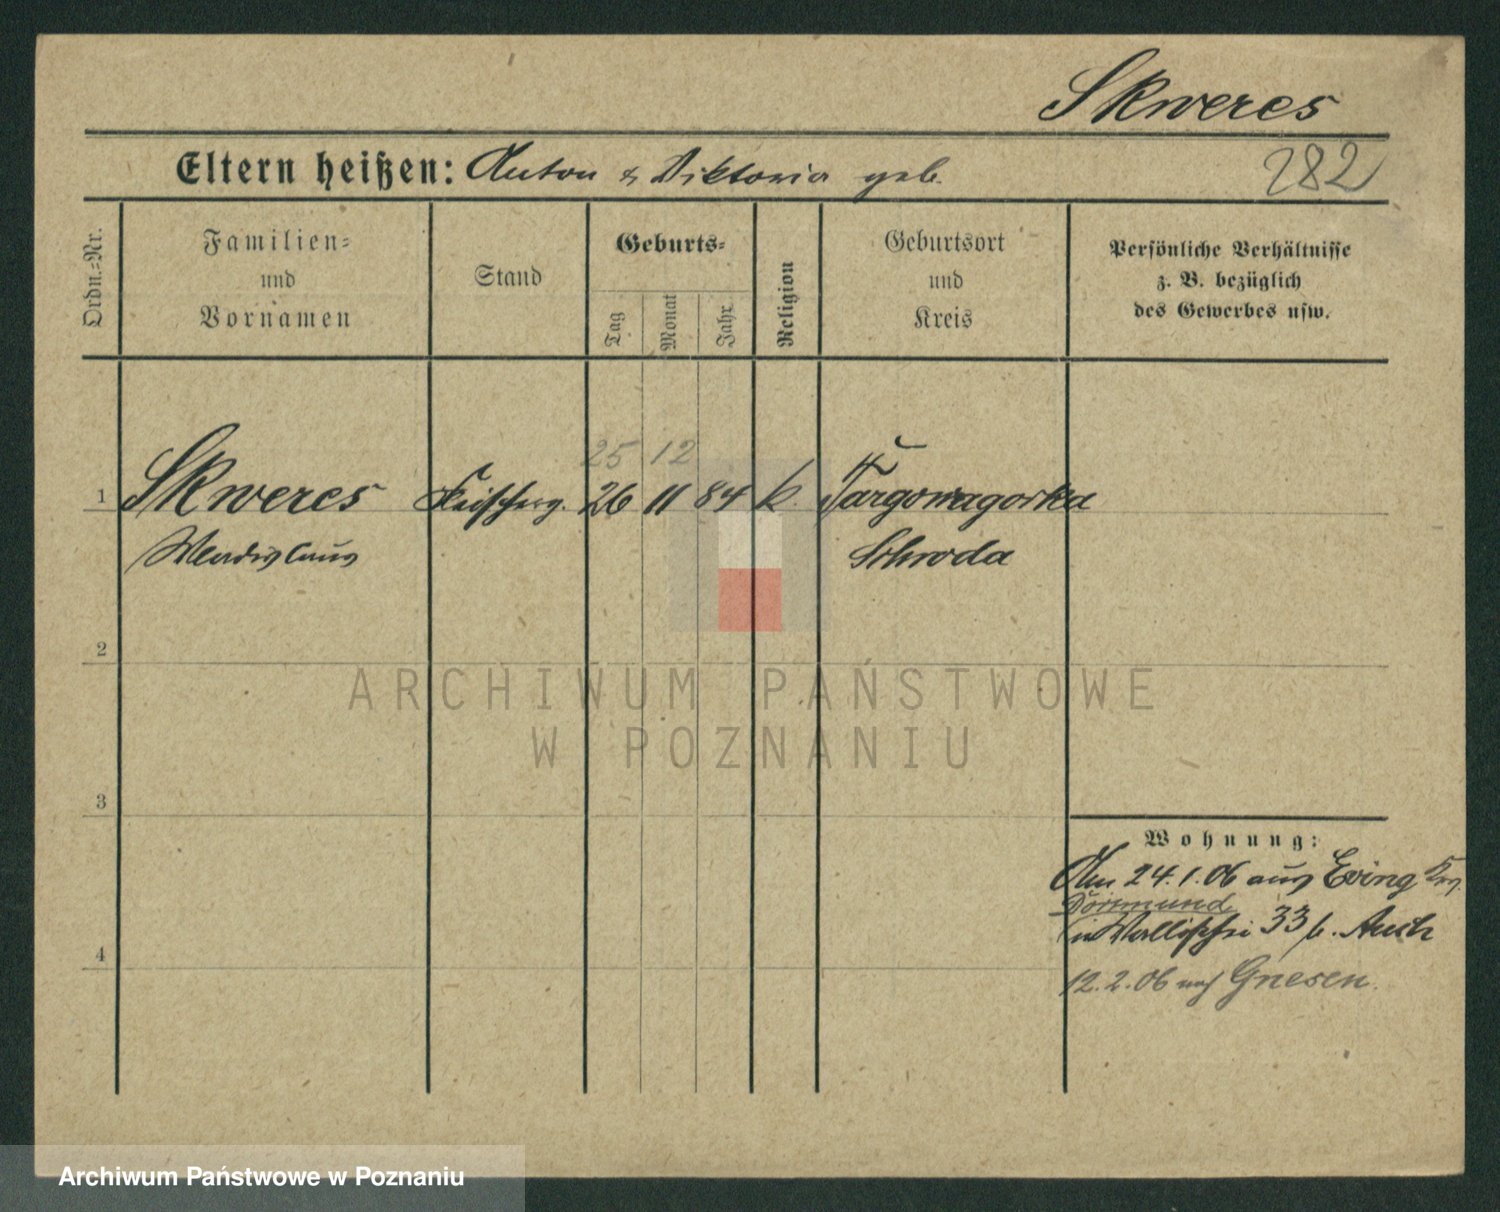 Skweres
Eltern heißen: Anton & Viktoria geb.
282
Ordn.-Nr.
Familien-
und
Vornamen
Stand
Geburts-
Tag
Monat
Jahr
Religion
Geburtsort
und
Kreis
Persönliche Verhältnisse
z. B. bezüglich
des Gewerbes usw.
25 12
1 Skweres 26 11 84 k. Targowagorka
Wladislaus Schroda
2
ARCHIWUM PAŃSTWOWE
W POZNANIU
3
Wohnung:
Am 24.1.06 aus Eving Krs.
Dortmund
in Wallischei 33 b.
4
12.2.06 nach Gnesen.
Archiwum Państwowe w Poznaniu